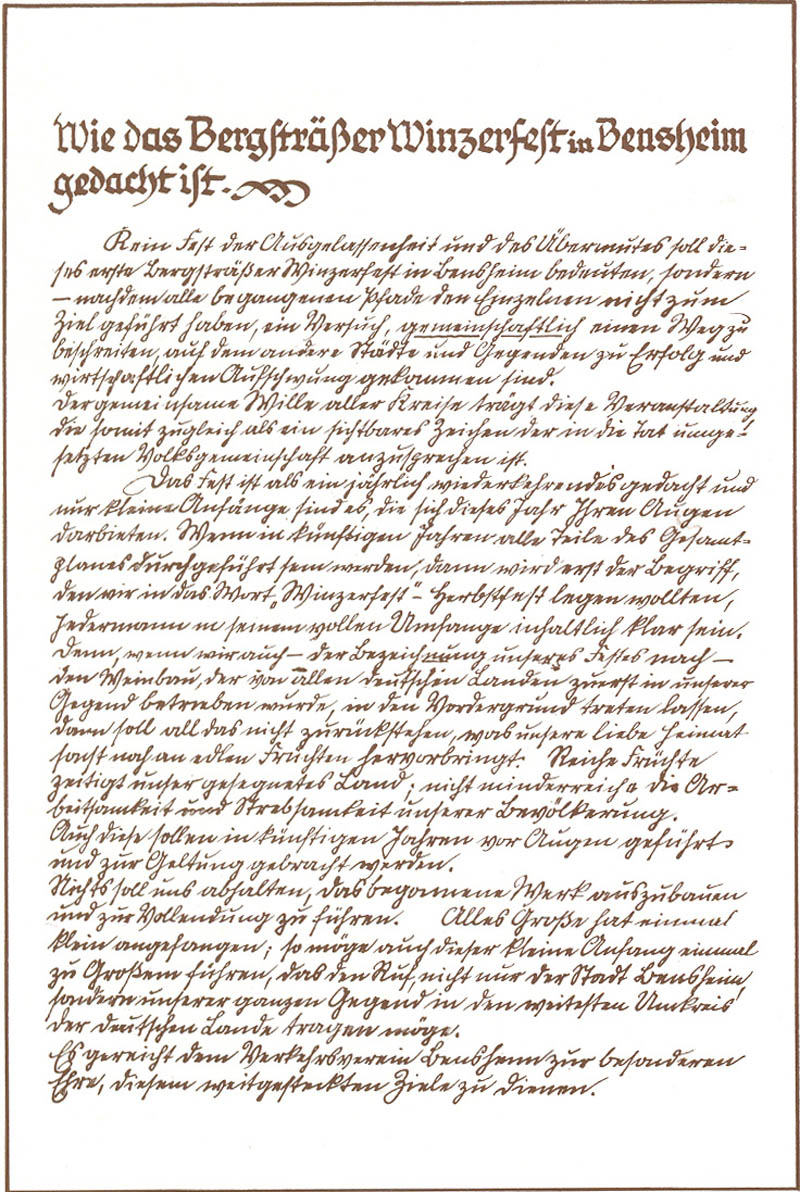 Wie das Bergsträßer Winzerfest in Bensheim
gedacht ist.
Kein Fest der Ausgelassenheit und des Übermutes soll die=
ses erste Bergsträßer Winzerfest in Bensheim bedeuten, sondern
— nachdem alle begangenen Pfade den Einzelnen nicht zum
Ziel geführt haben, ein Versuch, gemeinschaftlich einen Weg zu
beschreiten, auf dem andere Städte und Gegenden zu Erfolg und
wirtschaftlichen Aufschwung gekommen sind.
Der gemeinsame Wille aller Kreise trägt diese Veranstaltung,
die somit zugleich als ein sichtbares Zeichen der in die Tat umge=
setzten Volksgemeinschaft anzusprechen ist.
Das Fest ist als ein jährlich wiederkehrendes gedacht und
nur kleine Anfänge sind es, die sich dieses Jahr Ihren Augen
darbieten. Wenn in künftigen Jahren alle Teile des Gesamt=
planes durchgeführt sein werden, dann wird erst der Begriff,
den wir in das Wort „Winzerfest“ - Herbstfest legen wollten,
Jedermann in seinem vollen Umfange inhaltlich klar sein.
Denn, wenn wir auch — der Bezeichnung unseres Festes nach —
den Weinbau, der von allen deutschen Landen zuerst in unserer
Gegend betrieben wurde, in den Vordergrund treten lassen,
dann soll all das nicht zurückstehen, was unsere liebe Heimat
sonst noch an edlen Früchten hervorbringt. Reiche Früchte
zeitigt unser gesegnetes Land; nicht minder reiche die Ar=
beitsamkeit und Strebsamkeit unserer Bevölkerung.
Auch diese sollen in künftigen Jahren vor Augen geführt
und zur Geltung gebracht werden.
Nichts soll uns abhalten, das begonnene Werk auszubauen
und zur Vollendung zu führen. Alles Große hat einmal
klein angefangen; so möge auch dieser kleine Anfang einmal
zu Großem führen, das den Ruf, nicht nur der Stadt Bensheim,
sondern unserer ganzen Gegend in den weitesten Umkreis
der deutschen Lande tragen möge.
Es gereicht dem Verkehrsverein Bensheim zur besonderen
Ehre, diesem weitgesteckten Ziele zu dienen.